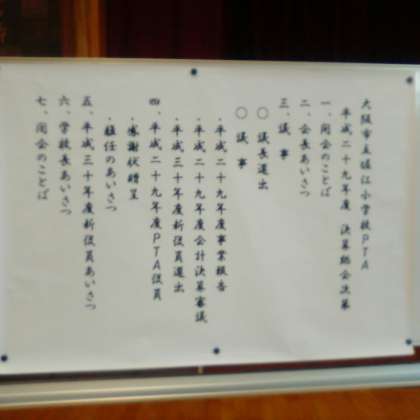 大阪市立堀江小学校PTA
平成二十九年度 決算総会次第
一、開会のことば
二、会長あいさつ
三、議事
○ 議長選出
○ 議事
・平成二十九年度事業報告
・平成二十九年度会計決算審議
・平成三十年度新役員選出
四、平成二十九年度PTA役員
・感謝状贈呈
・離任のあいさつ
五、平成三十年度新役員あいさつ
六、学校長あいさつ
七、閉会のことば